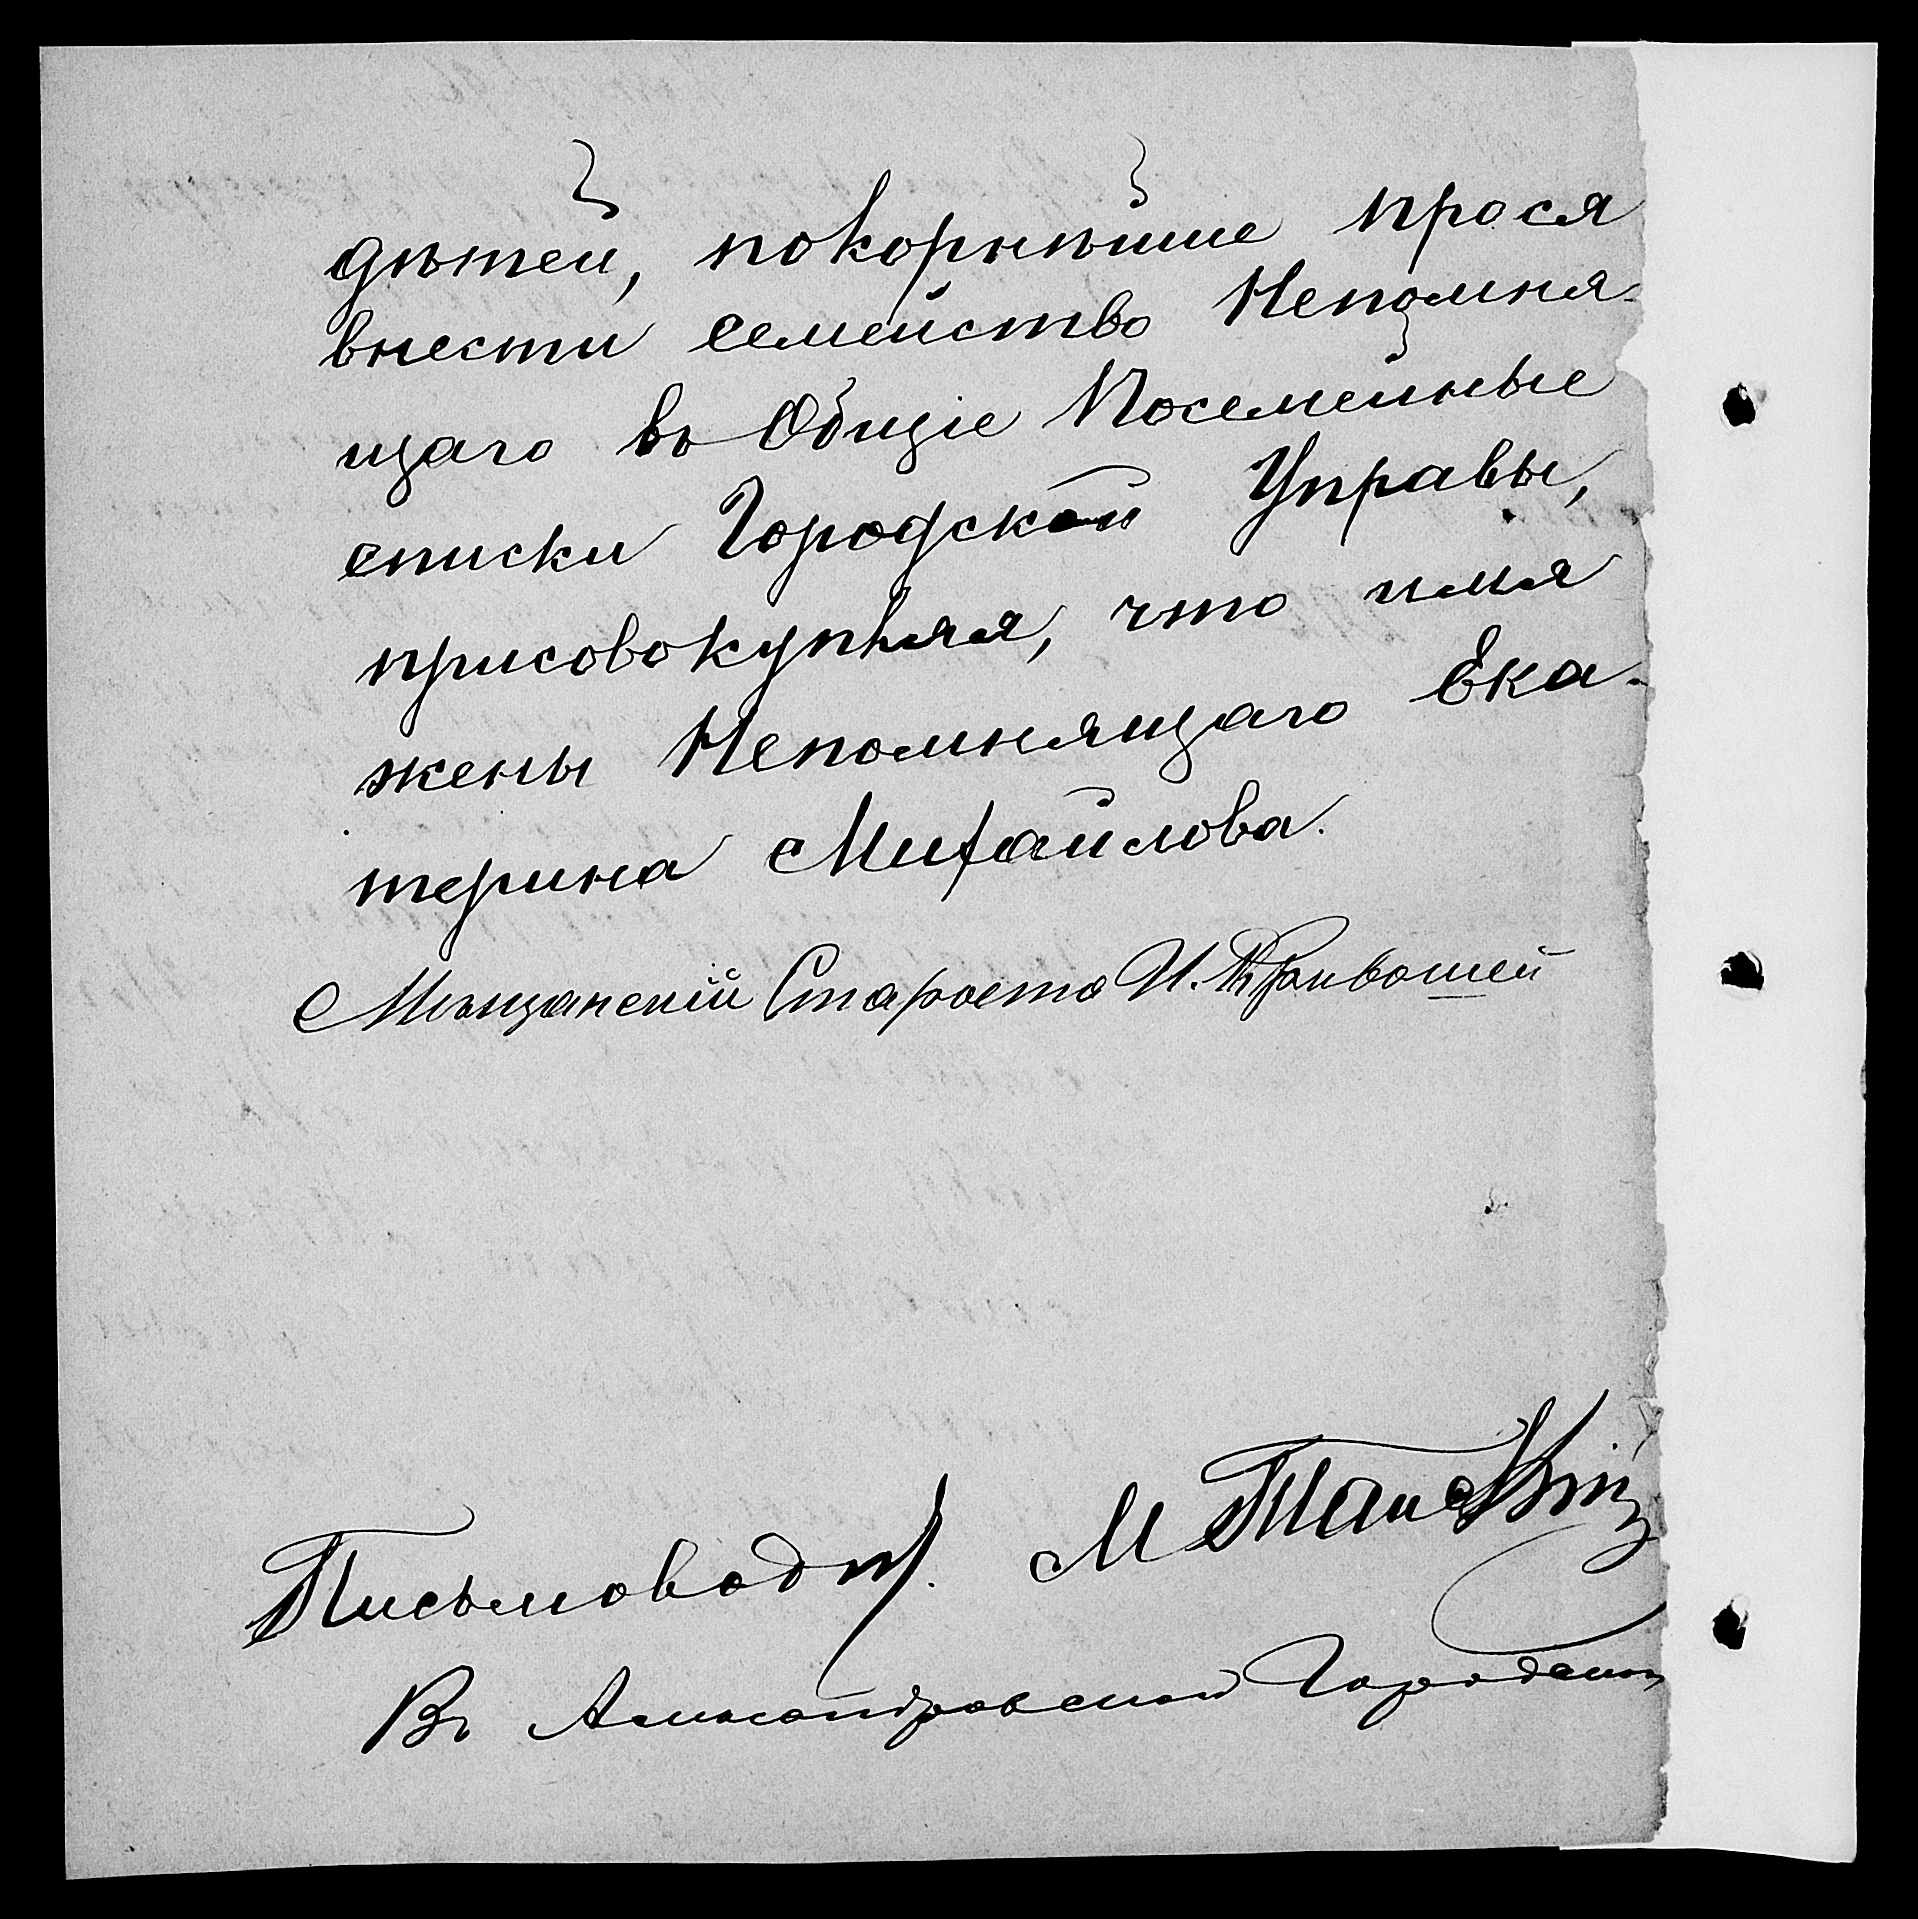 дѣтей, покорнѣйше прося
внести семейство Непомня-
щаго въ Общіе Посемейные
списки Городской Управы,
присовокупляя, что имя
жены Непомнящаго Ека-
терина Михайлова.
Мѣщанскій Староста И. Кривошей
Письмоводит. М
Въ Александровскую Городскую